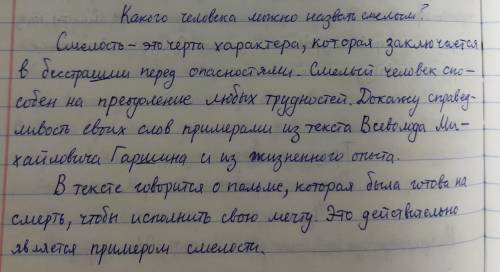 Какого человека можно назвать смелым?
Смелость – это черта характера, которая заключается
в бесстрашии перед опасностями. Смелый человек спо-
собен на преодоление любых трудностей. Докажу справед-
ливость своих слов примерами из текста Всеволода Ми-
хайловича Гаршина и из жизненного опыта.
В тексте говорится о пальме, которая была готова на
смерть, чтобы исполнить свою мечту. Это действительно
является примером смелости.